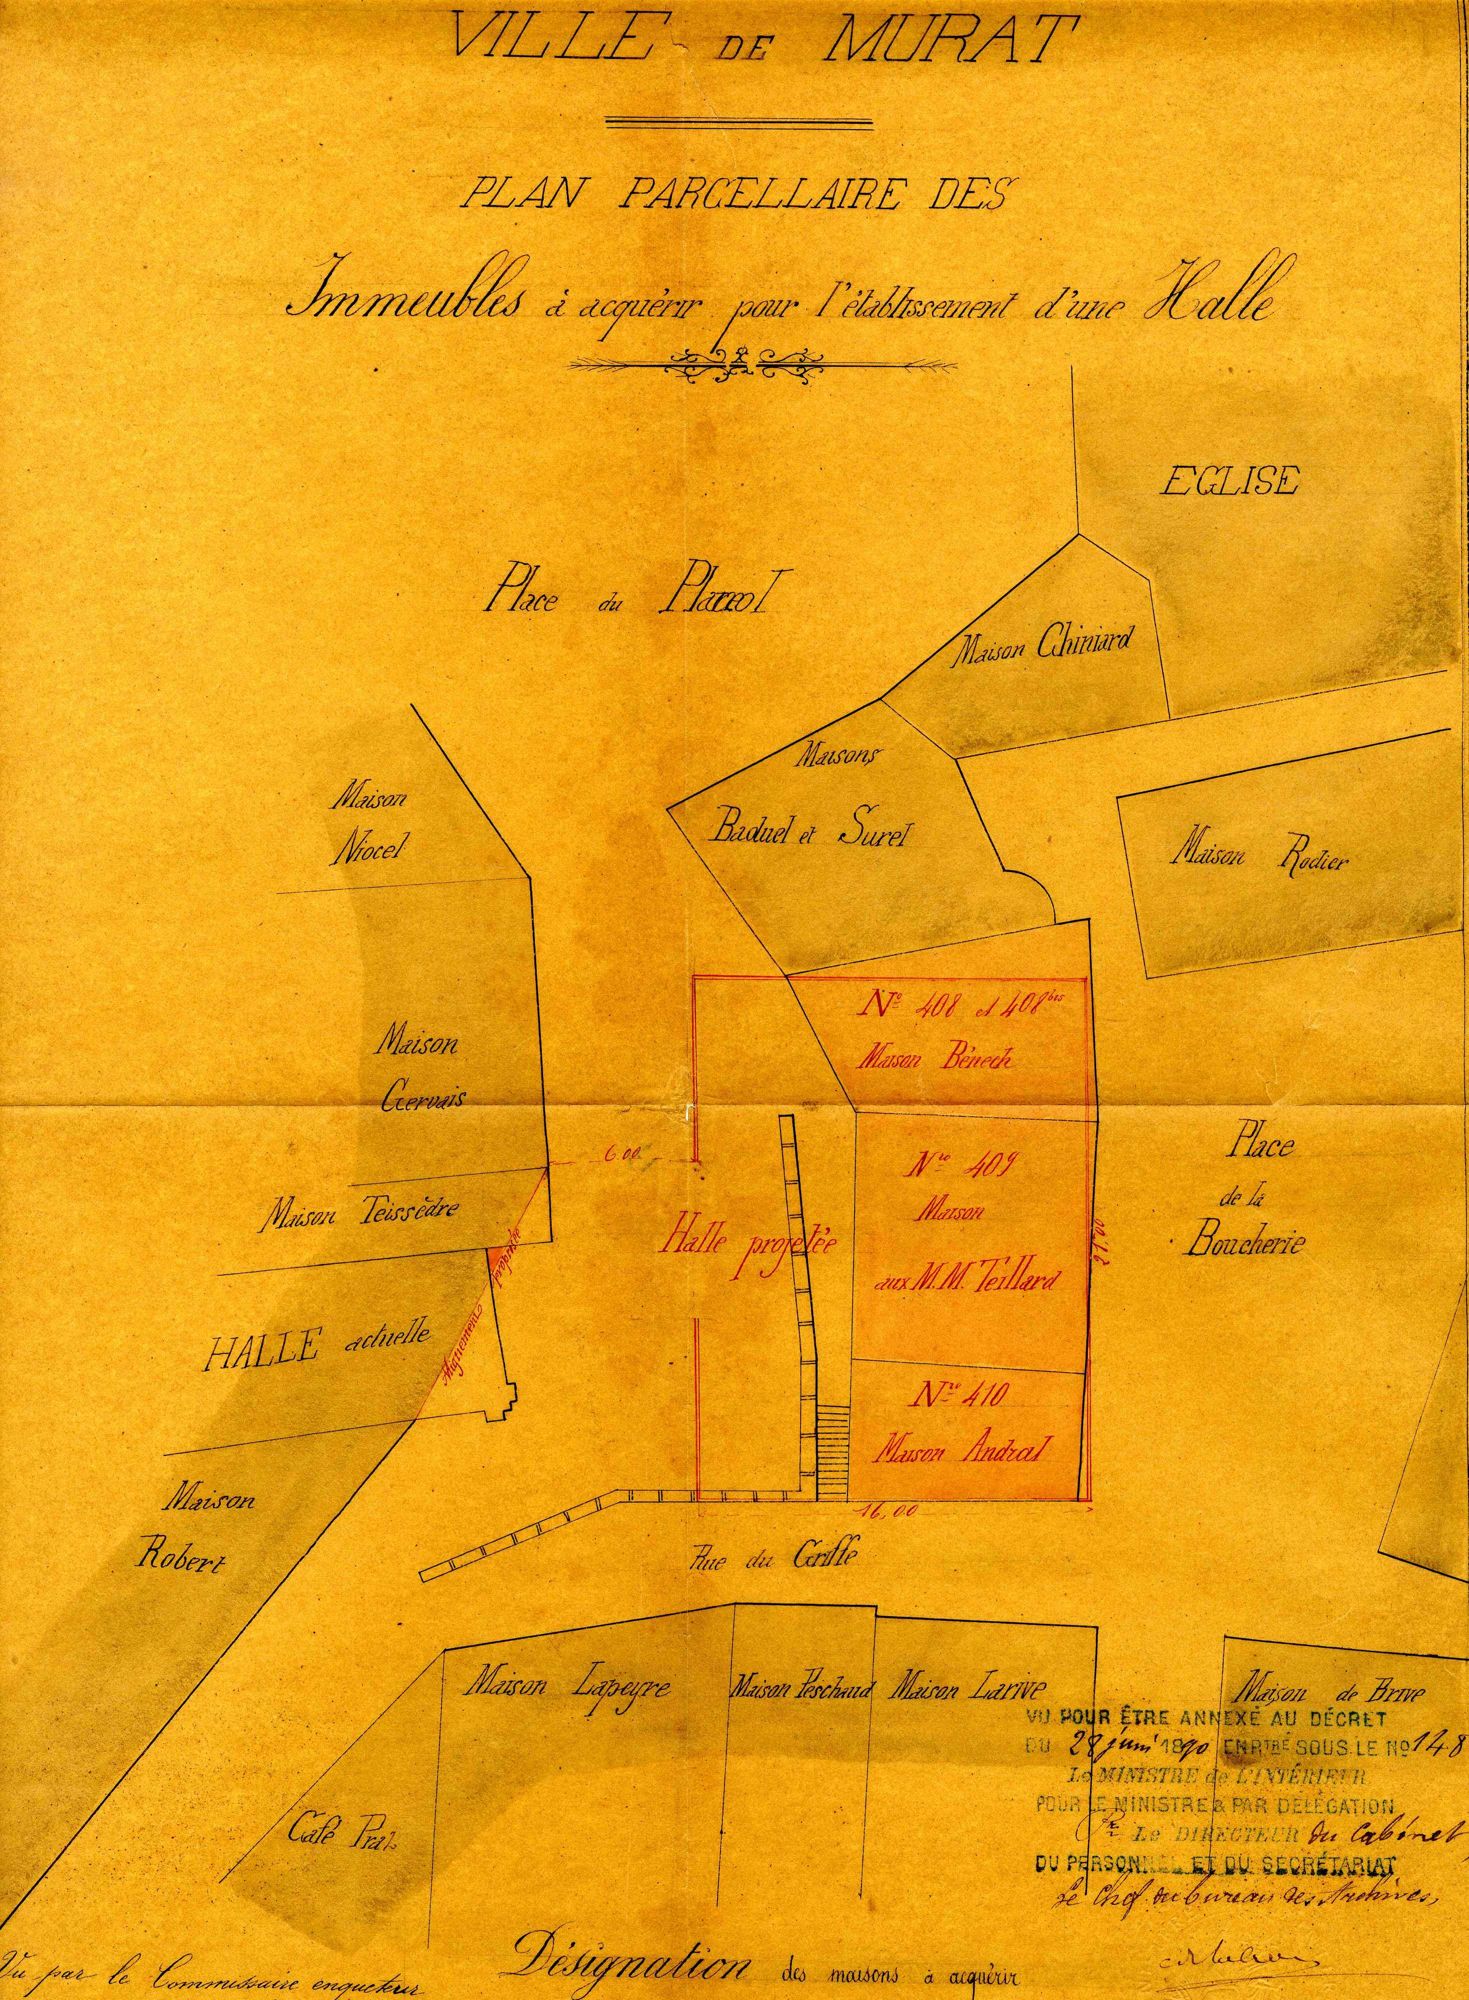 VILLE DE MURAT
PLAN PARCELLAIRE DES
Immeubles à acquérir pour l'établissement d'une Halle
EGLISE
Place du Planol
Maison Chiniard
Maisons
Baduel et Surel
Maison
Niocel
Maison Rodier
Nº 408 et 408 bis
Maison Bénech
Maison
Gervais
6.00
Nro 409
Maison
aux M.M. Teillard
Place
de la
Boucherie
Maison Teissèdre
Halle projetée
21,00
Alignement projetée
HALLE actuelle
Nro 410
Maison Andral
Maison
Robert
16,00
Rue du Griffe
Maison Lapeyre
Maison Peschaud
Maison Larive
Maison de Brive
Café Prat
VU POUR ÊTRE ANNEXÉ AU DÉCRET
DU 28 juin 1890 ENRTRÉ SOUS LE No 148
Le MINISTRE de L'INTÉRIEUR
POUR LE MINISTRE & PAR DÉLÉGATION
Pr Le DIRECTEUR du Cabinet
DU PERSONNEL ET DU SECRÉTARIAT
Le Chef du bureau des Archives,
Vu par le Commissaire enquêteur
Désignation des maisons à acquérir